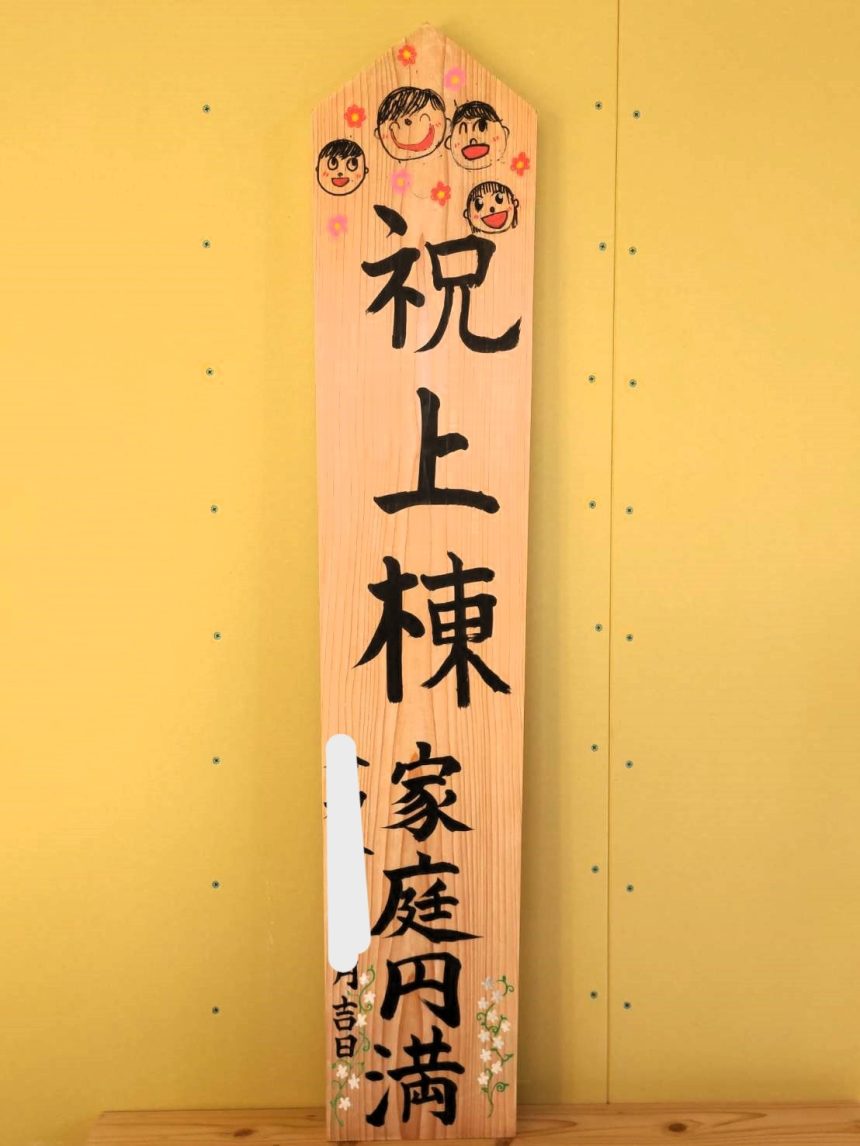 祝上棟
家庭円満
月吉日